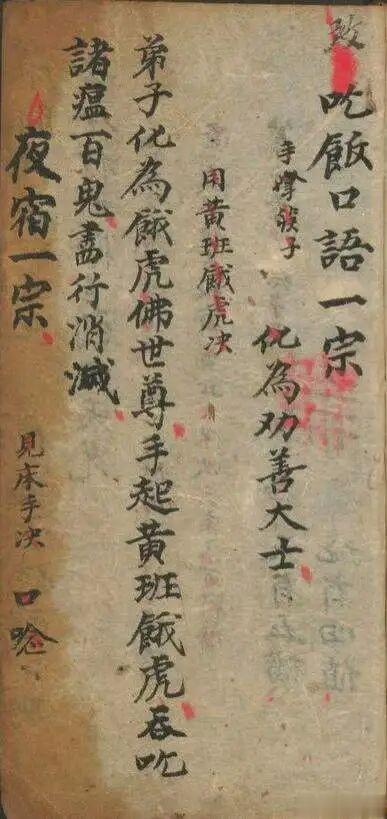 吃飯口語一宗
手子 化為劝善大士
用黄班餓虎决
弟子化為餓虎佛世尊手起黄班餓虎吞吃
諸瘟百鬼盡行消滅
夜宿一宗 見床手决 口唸